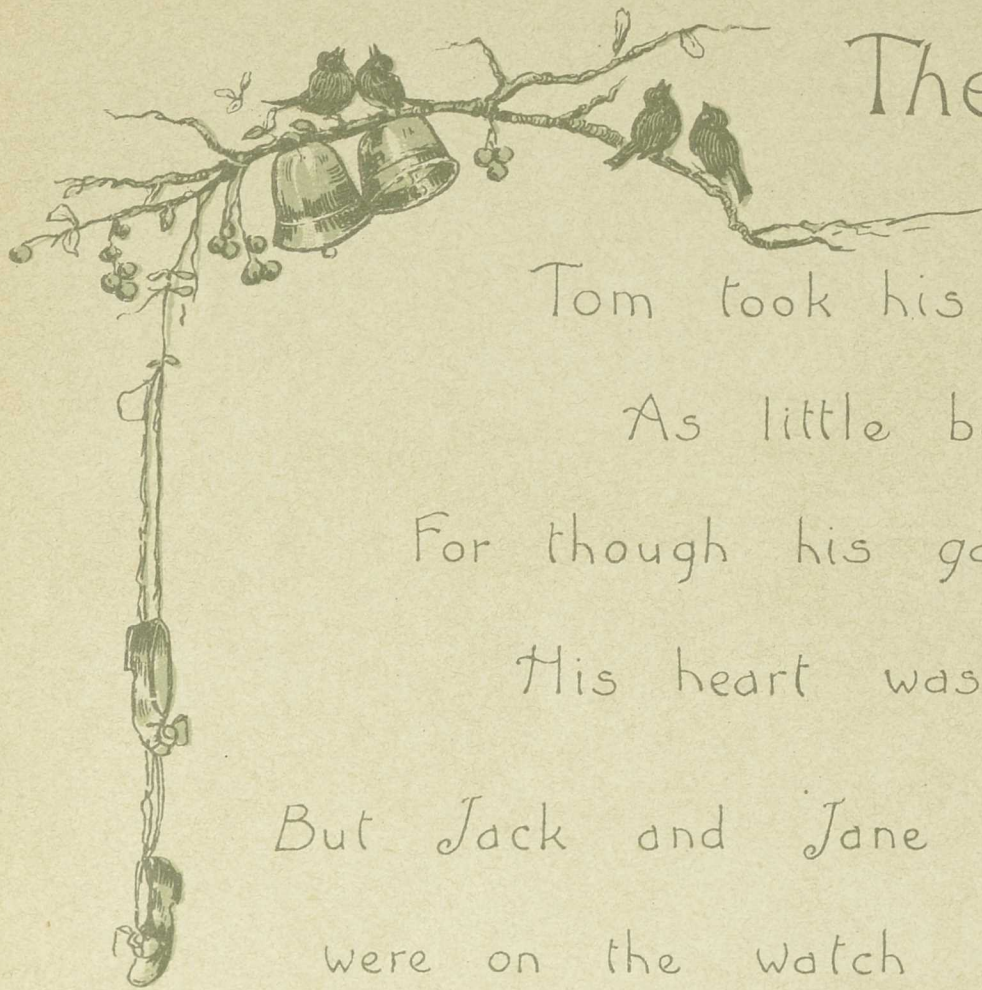 The
Tom took his
As little b
For though his go
His heart was
But Jack and Jane
were on the watch